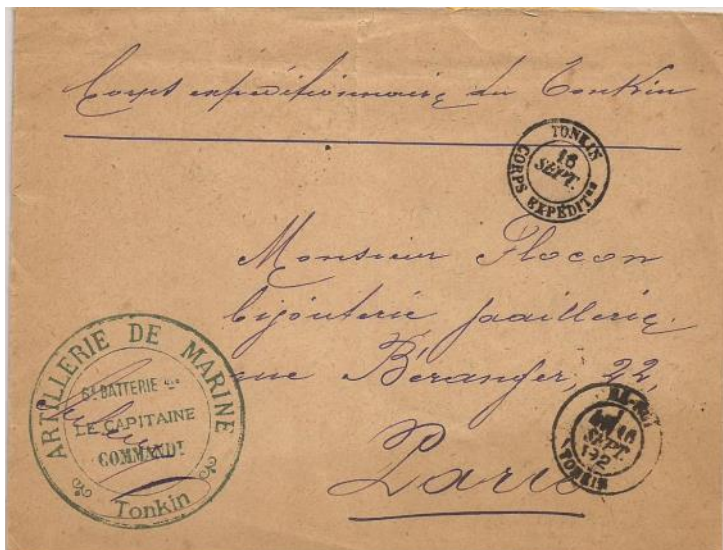 Corps expéditionnaire du Tonkin
TONKIN
16
SEPT.
CORPS EXPEDIT
Monsieur Flocon
bijouterie joaillerie
rue Béranger, 22,
Paris
ARTILLERIE DE MARINE
6e BATTERIE
LE CAPITAINE
COMMANDT
Tonkin
16
SEPT.
92
TONKIN